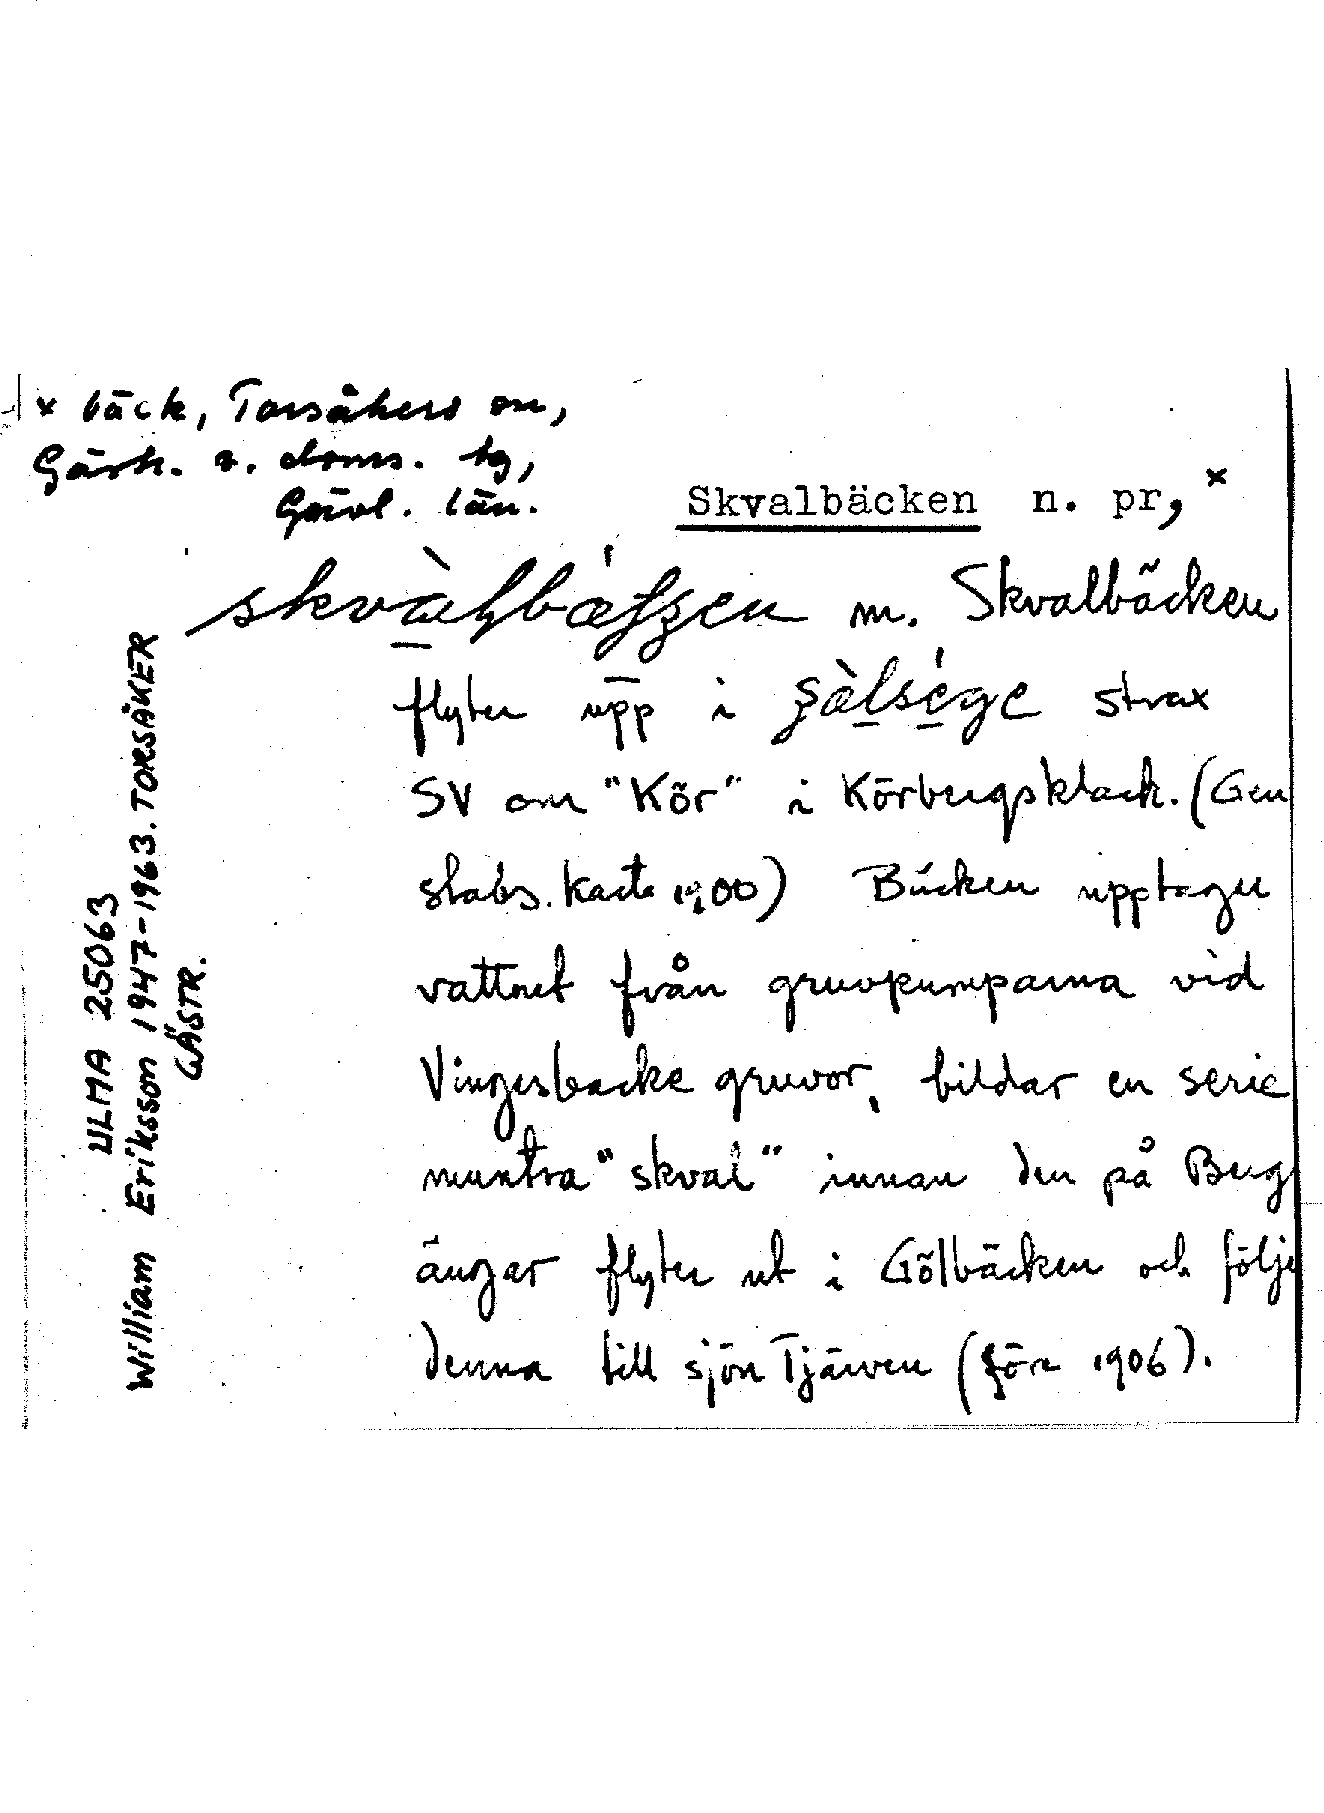 × bäck, Torsåkers sn,
Gästr. ö. doms. tg,
Gävl. län.
Skvalbäcken n. pr, ×
m. Skvalbäcken
flyter upp i strax
SV om "Kör" i Körbergsklack. (Gen
stabs. karta 1900) Bäcken upptager
vattnet från gruvpumparna vid
Vingesbacke gruvor, bildar en serie
muntra "skval" innan den på Berg
ängar flyter ut i Gölbäcken och följer
denna till sjön Tjärven (före 1906).
ULMA 25063
William Eriksson 1947-1963. TORSÅKER
GÄSTR.